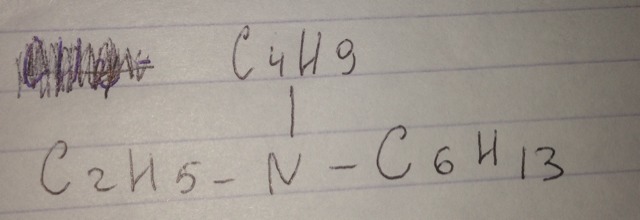 C4H9
|
C2H5-N-C6H13